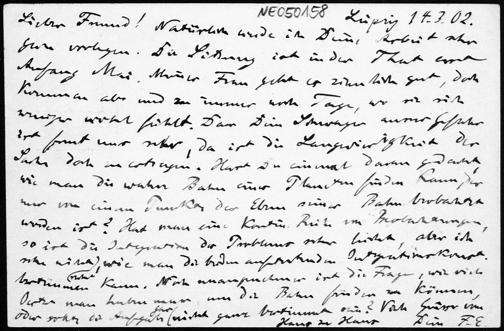 NE050158
Leipzig 14.3.02.
Lieber Freund! Natürlich werde ich Deine Arbeit sehr
gern vorlegen. Die Sitzung ist in der That erst
Anfang Mai. Meiner Frau geht es ziemlich gut, doch
kommen ab und zu immer noch Tage, wo sie sich
weniger wohl fühlt. Das Dein Schwager ausser Gefahr
ist freut uns sehr, da ist die Langwierigkeit der
Sache doch zu ertragen. Hast Du einmal daran gedacht,
wie man die wahre Bahn eines Planeten finden kann, der
nur von einem Punkte der Ebene seiner Bahn beobachtet
worden ist? Hat man eine Kontin. Reihe von Beobachtungen,
so ist die Integration des Problems sehr leicht, aber ich
sehe nicht, wie man die beiden auftretenden Integrationskonst.
bestimmen kann. Noch unangenehmer ist die Frage, wie viele
Oerter man haben muss um die Bahn finden zu können,
oder ist die Aufgabe gar nicht ganz bestimmt? Viele Grüsse von
Haus zu Haus Dein F. E.